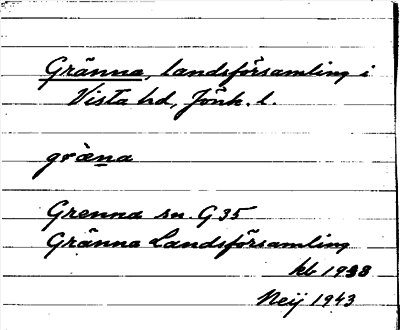 Gränna, landsförsamling i
Vista hd, Jönk. l.
græ̀na
Grenna sn. G35
Gränna Landsförsamling
kb 1933
Neij 1943